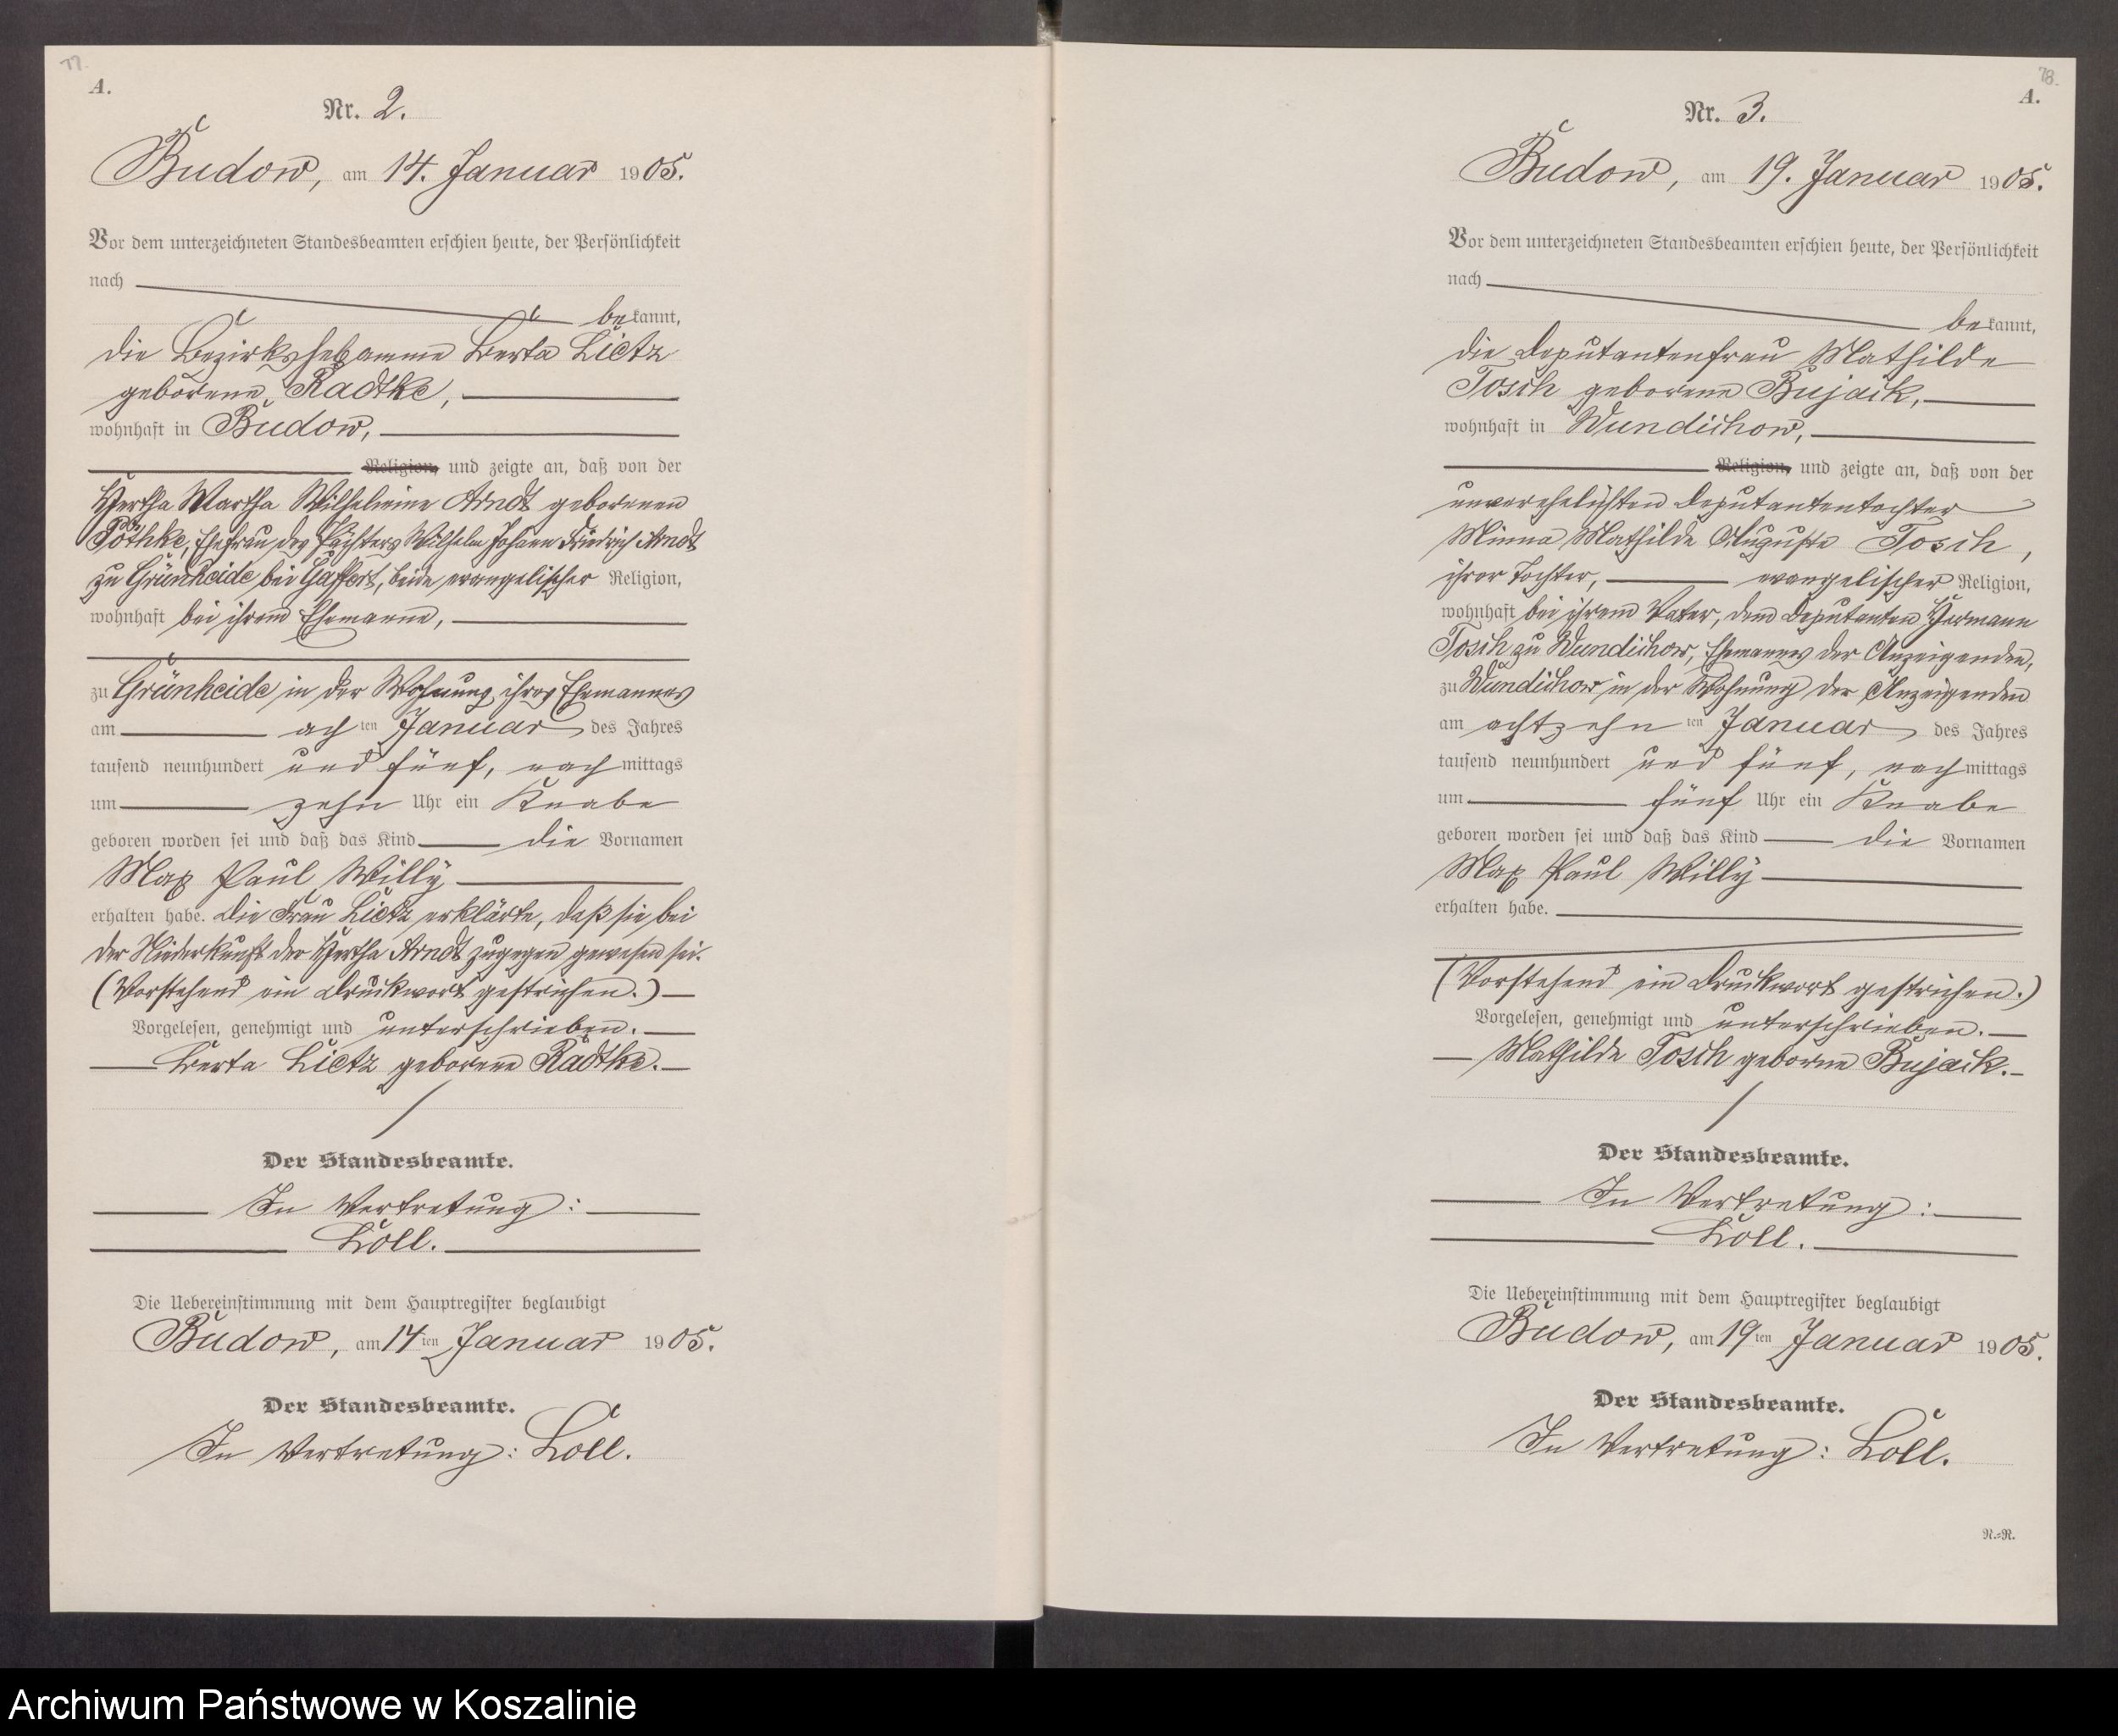 77.
A.
Nr. 2.
Budow, am 14. Januar 1905.
Vor dem unterzeichneten Standesbeamten erschien heute, der Persönlichkeit
nach
bekannt,
die Bezirkshebamme Berta Lietz
geborene Radtke,
wohnhaft in Budow,
Religion, und zeigte an, daß von der
Hertha Martha Wilhelmine Arndt geborenen
Pöthke, Ehefrau des Pächters Wilhelm Johann Friedrich Arndt
zu Grünheide bei Gaffert, beide evangelischer Religion,
wohnhaft bei ihrem Ehemanne,
zu Grünheide in der Wohnung ihres Ehemannes
am achten Januar des Jahres
tausend neunhundert und fünf, nachmittags
um zehn Uhr ein Knabe
geboren worden sei und daß das Kind die Vornamen
Max Paul Willy
erhalten habe. Die Frau Lietz erklärte, daß sie bei
der Niederkunft der Hertha Arndt zugegen gewesen sei.
(Vorstehend ein Druckwort gestrichen.)
Vorgelesen, genehmigt und unterschrieben.
Berta Lietz geborene Radtke.
Der Standesbeamte.
In Vertretung:
Löll.
Die Uebereinstimmung mit dem Hauptregister beglaubigt
Budow, am 14ten Januar 1905.
Der Standesbeamte.
In Vertretung: Loll.
78.
A.
Nr. 3.
Budow, am 19. Januar 1905.
Vor dem unterzeichneten Standesbeamten erschien heute, der Persönlichkeit
nach
bekannt,
die Deputantenfrau Mathilde
Tosch geborene Bujack,
wohnhaft in Wundichow,
Religion, und zeigte an, daß von der
unverehelichten Deputantentochter
Minna Mathilde Auguste Tosch,
ihrer Tochter, evangelischer Religion,
wohnhaft bei ihrem Vater, dem Deputanten Hermann
Tosch zu Wundichow, Ehemannes der Anzeigenden,
zu Wundichow in der Wohnung der Anzeigenden
am achtzehnten Januar des Jahres
tausend neunhundert und fünf, nachmittags
um fünf Uhr ein Knabe
geboren worden sei und daß das Kind die Vornamen
Max Paul Willy
erhalten habe.
(Vorstehend ein Druckwort gestrichen.)
Vorgelesen, genehmigt und unterschrieben.
Mathilde Tosch geborne Bujack.
Der Standesbeamte.
In Vertretung:
Loll.
Die Uebereinstimmung mit dem Hauptregister beglaubigt
Budow, am 19ten Januar 1905.
Der Standesbeamte.
In Vertretung: Loll.
N.=N.
Archiwum Państwowe w Koszalinie